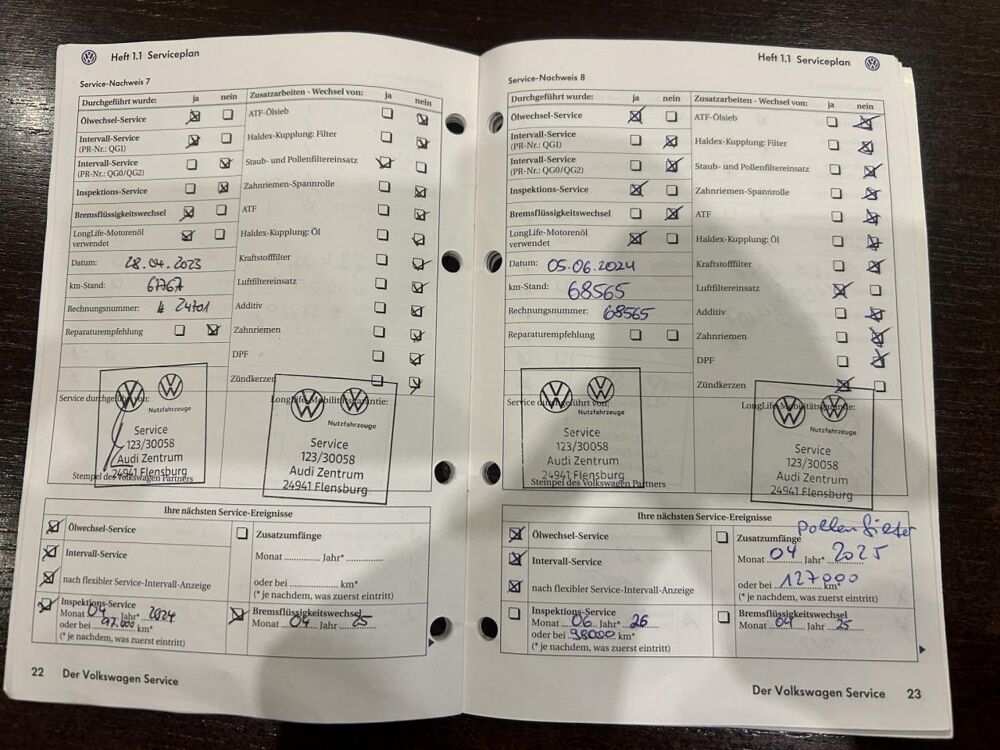 Heft 1.1 Serviceplan
Service-Nachweis 7
Durchgeführt wurde: ja nein
Ölwechsel-Service
Intervall-Service
(PR-Nr.: QGI)
Intervall-Service
(PR-Nr.: QG0/QG2)
Inspektions-Service
Bremsflüssigkeitswechsel
LongLife-Motorenöl
verwendet
Datum: 28.04.2023
km-Stand: 67767
Rechnungsnummer: 24701
Reparaturempfehlung
Zusatzarbeiten - Wechsel von: ja nein
ATF-Ölsieb
Haldex-Kupplung: Filter
Staub- und Pollenfiltereinsatz
Zahnriemen-Spannrolle
ATF
Haldex-Kupplung: Öl
Kraftstofffilter
Luftfiltereinsatz
Additiv
Zahnriemen
DPF
Zündkerzen
Service durchgeführt von:
Nutzfahrzeuge
Service
123/30058
Audi Zentrum
24941 Flensburg
Stempel des Volkswagen Partners
LongLife-Mobilitätsgarantie:
Nutzfahrzeuge
Service
123/30058
Audi Zentrum
24941 Flensburg
Ihre nächsten Service-Ereignisse
Ölwechsel-Service
Intervall-Service
nach flexibler Service-Intervall-Anzeige
Zusatzumfänge
Monat ............. Jahr* ............
oder bei ........................... km*
(* je nachdem, was zuerst eintritt)
Inspektions-Service
Monat 04 Jahr* 2024
oder bei 97.000 km*
(* je nachdem, was zuerst eintritt)
Bremsflüssigkeitswechsel
Monat 04 Jahr 25
22 Der Volkswagen Service
Heft 1.1 Serviceplan
Service-Nachweis 8
Durchgeführt wurde: ja nein
Ölwechsel-Service
Intervall-Service
(PR-Nr.: QGI)
Intervall-Service
(PR-Nr.: QG0/QG2)
Inspektions-Service
Bremsflüssigkeitswechsel
LongLife-Motorenöl
verwendet
Datum: 05.06.2024
km-Stand: 68565
Rechnungsnummer: 68565
Reparaturempfehlung
Zusatzarbeiten - Wechsel von: ja nein
ATF-Ölsieb
Haldex-Kupplung: Filter
Staub- und Pollenfiltereinsatz
Zahnriemen-Spannrolle
ATF
Haldex-Kupplung: Öl
Kraftstofffilter
Luftfiltereinsatz
Additiv
Zahnriemen
DPF
Zündkerzen
Service durchgeführt von:
Nutzfahrzeuge
Service
123/30058
Audi Zentrum
24941 Flensburg
Stempel des Volkswagen Partners
LongLife-Mobilitätsgarantie:
Nutzfahrzeuge
Service
123/30058
Audi Zentrum
24941 Flensburg
Ihre nächsten Service-Ereignisse
Ölwechsel-Service
Intervall-Service
nach flexibler Service-Intervall-Anzeige
Pollenfilter
Zusatzumfänge
Monat 04 Jahr* 2025
oder bei 127000 km*
(* je nachdem, was zuerst eintritt)
Inspektions-Service
Monat 06 Jahr* 26
oder bei 98000 km*
(* je nachdem, was zuerst eintritt)
Bremsflüssigkeitswechsel
Monat 04 Jahr 25
Der Volkswagen Service 23